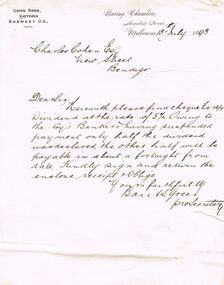 COHN BROS.
VICTORIA
BREWERY CO.
Baring Chambers,
Market Street,
Melbourne 13 July 1893
Charles Cohen Esq
View Street
Bendigo
Dear Sir
Herewith please find cheque
Dividend at the rate of 5% Owing to
the Coy's Bankers having suspended
payment only half the dividend
was declared the other half will be
payable in about a fortnight from
date. Kindly sign and return the
enclose receipt & Oblige
Yours faithfully
pro Secretary